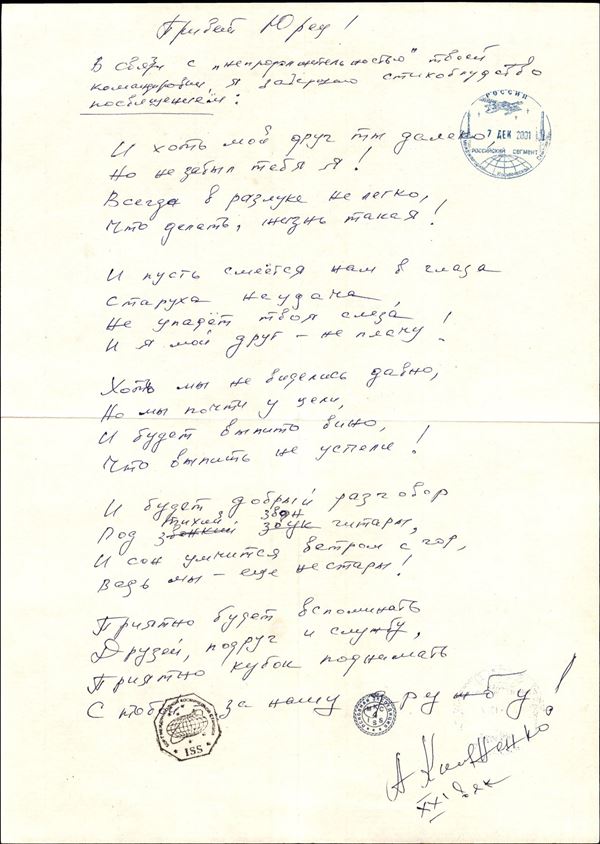 Привет Юрец!
В связи с "непродолжительностью" твоей
командировки, я стихоблудство
посвящением:
РОССИЯ
7 ДЕК 2001
РОССИЙСКИЙ СЕГМЕНТ
И хоть мой друг ты далеко,
Но не забыл тебя я!
Всегда в разлуке не легко,
Что делать, жизнь такая!
И пусть смеётся нам в глаза
Старуха неудача,
Не упадёт твоя слеза
И я мой друг - не плачу!
Хоть мы не виделись давно,
Но мы почти у цели,
И будет выпито вино,
Что выпить не успели!
И будет добрый разговор
тихий звон
Под звонкий звук гитары,
И сон умчится ветром с гор,
Ведь мы - еще не стары!
Приятно будет вспоминать
Друзей, подруг и службу,
Приятно кубок поднимать
С тобой за нашу дружбу!
ISS
МКС
ISS
XXI век